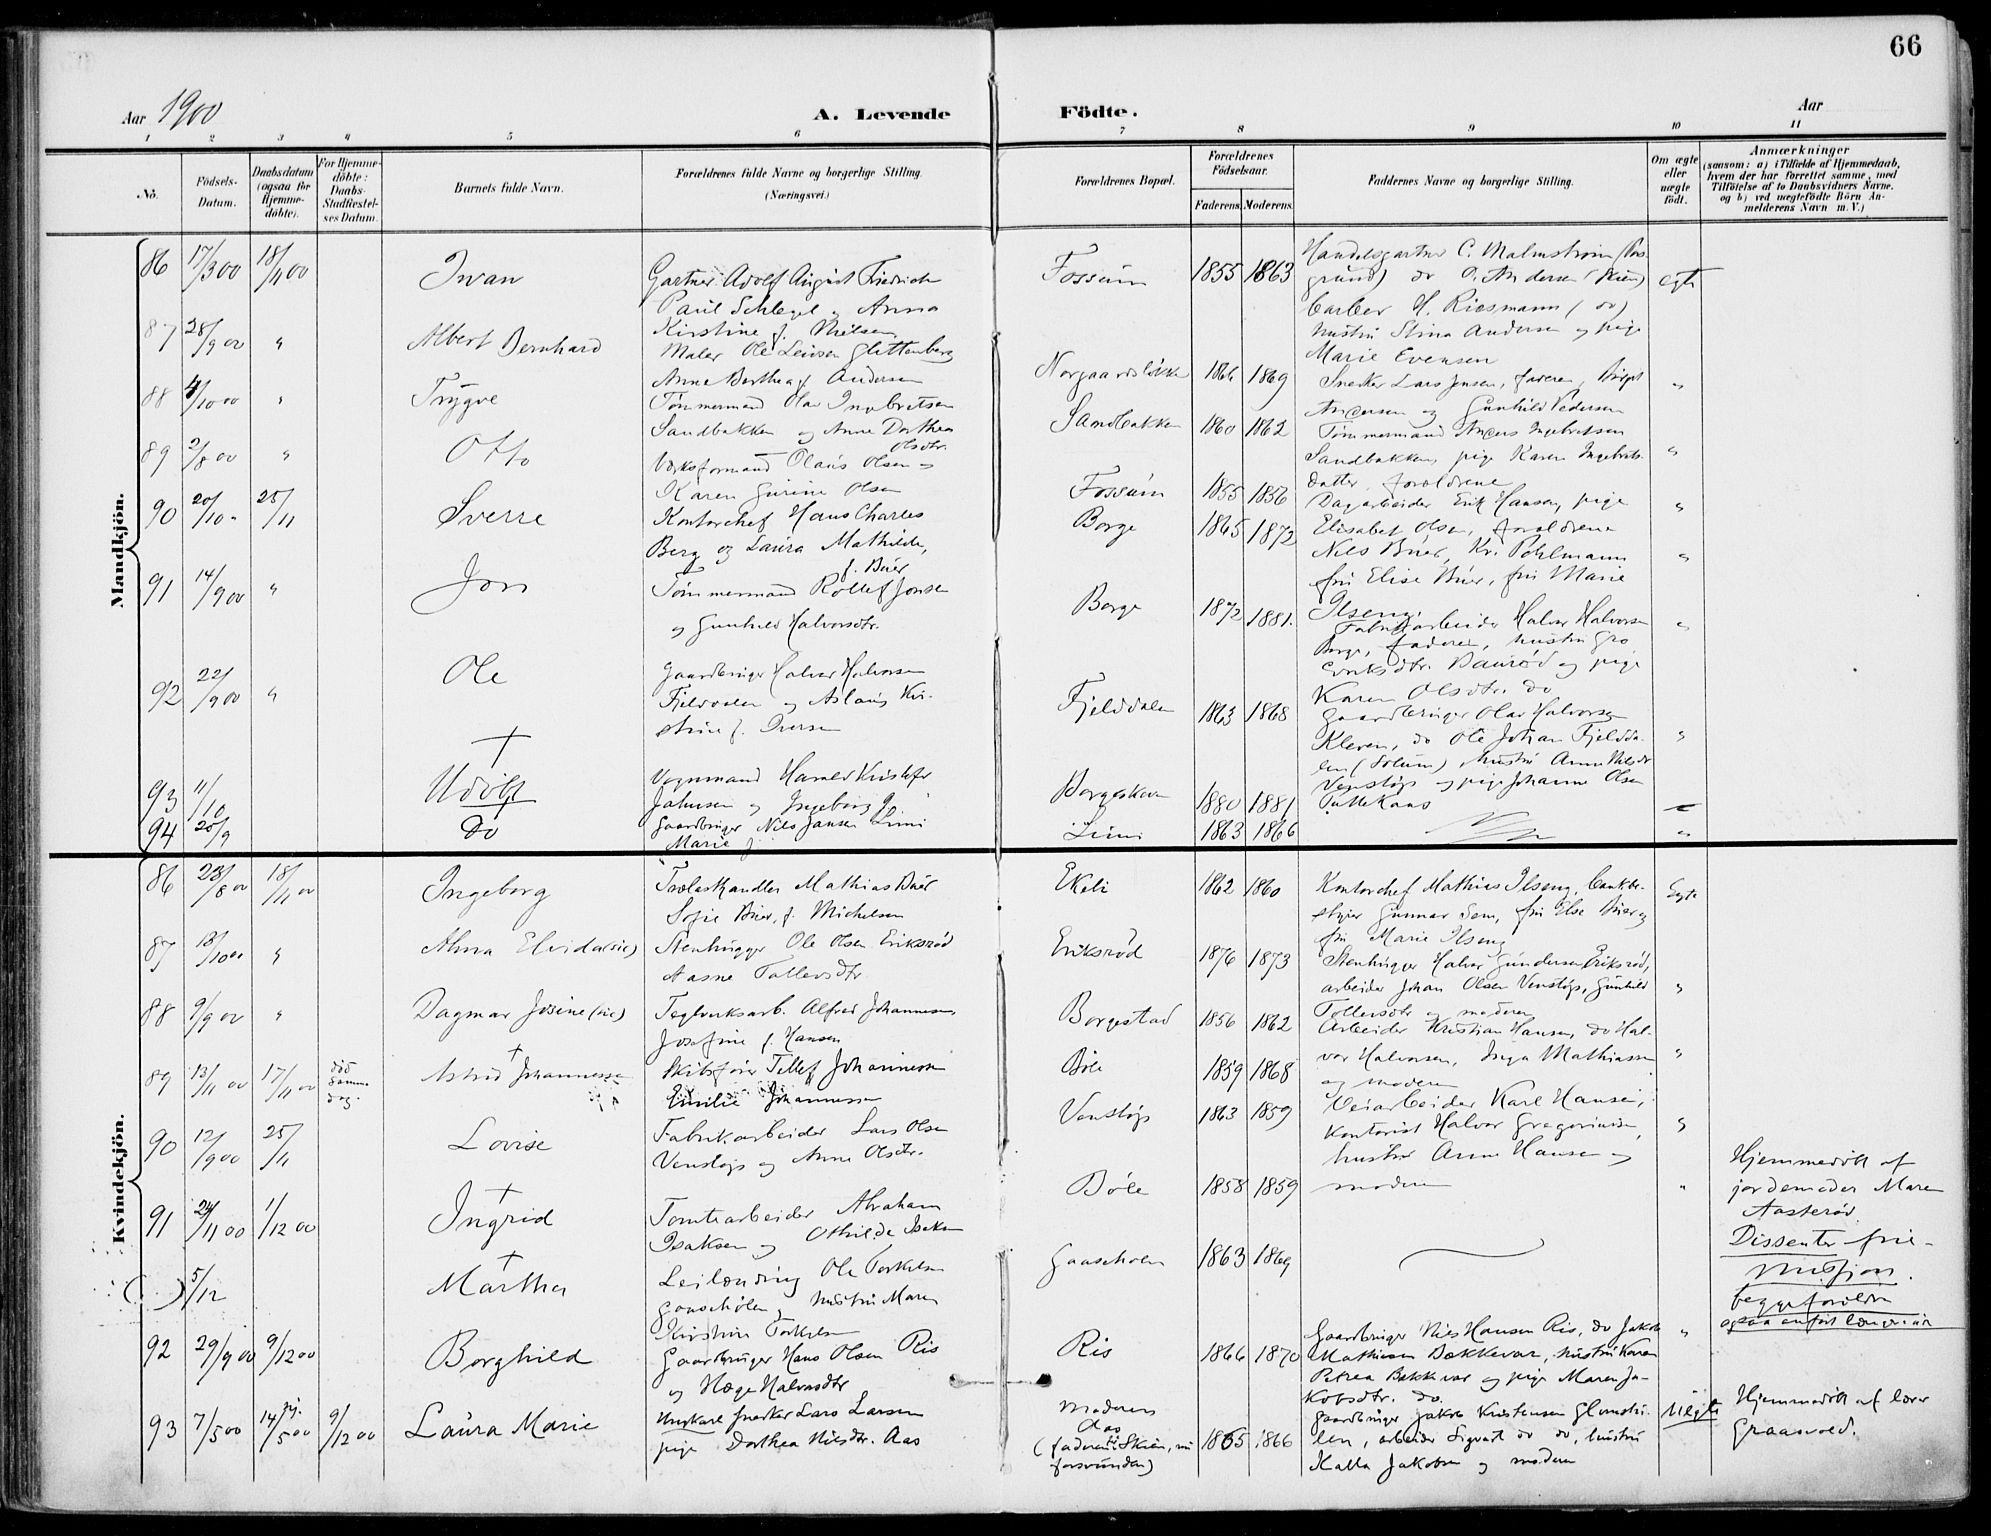 66
Aar 1900
A. Levende Födte.
Aar
1 2 3 4 5 6 7 8 9 10 11
No.
Födsels-Datum.
Daabsdatum (ogsaa for Hjemme-döbte).
For Hjemme-döbte: Daabs-Stadfæstel-ses Datum.
Barnets fulde Navn.
Forældrenes fulde Navne og borgerlige Stilling. (Næringsvei.)
Forældrenes Bopæl.
Forældrenes Födselsaar.
Faderens. Moderens.
Faddernes Navne og borgerlige Stilling.
Om ægte eller uægte födt.
Anmærkninger
(saasom: a) i Tilfælde af Hjemmedaab, hvem der har forrettet samme, med Tilföielse af to Daabsvidners Navne. og b) ved uægtefödte Börn An-melderens Navn m. V.)
Mandkjön.
86 17/3 00 18/11 00 Iwan
Gartner Adolf August Friedrich
Paul Schlegel og Anna
Kirstine f. Nielsen
Fossum 1855 1863
Handelsgartner C. Malmstrøm (Pors-
grund) do O. Andersen (Skien)
barber H. Riesmann (do)
hustru Stina Andersen og pige
Marie Evensen
egte
87 28/9 00 " Albert Bernhard
Maler Ole Leivsen Glittenberg
Anne Berthea f. Andersen
Norgaardsløkke 1866 1869
Snedker Lars Jensen, faderen, Birgit
Andersen og Gunhild Pedersen
"
88 4/10 00 " Trygve
Tømmermand Olav Ingebretsen
Sandbakken og Anne Dorthea
Olsdtr.
Sandbakken 1860 1862
Tømmermand Anders Ingebretsen
Sandbakken, pige Karen Ingebrets-
datter, forældrene
"
89 2/8 00 " Otto
Værksformand Olaus Olsen og
Karen Gurine Olsen
Fossum 1855 1856
Dagarbeider Erik Hansen, pige
Elisabet Olsen, forældrene
"
90 20/10 " 25/11 Sverre
Kontorchef Hans Charles
Berg og Laura Mathilde,
f. Buer
Borge 1865 1872
Nils Buer, Kr. Pohlmann
fru Elise Buer, fru Marie
Ilseng.
"
91 14/9 00 " Jon
Tømmermand Rollef Jonsen
og Gunhild Halvorsdtr.
Borge 1872 1881.
Fabrikarbeider Halvor Halvorsen
Borge, faderen, hustru Gro
Eriksdtr. Baurød og pige
Karen Olsdtr. do
"
92 22/9 00 " Ole
Gaardbruger Halvor Halvorsen
Fjelddalen og Aslaug Kir-
stine f. Iversen
Fjelddalen 1863 1868
Gaardbruger Olav Halvorsen
Kleven, do Ole Johan Fjeldda-
len (Solum), hustru Anne Nilsdr
Venstøp og pige Johanne Olsen
Tuttekaas
"
93 11/10 Udöbt
Vognmand Harald Kristofer
Jahnsen og Ingeborg
1880 1881
94 20/9 Do
Gaardbruger Nils Jansen Limi
Marie f.
Limi 1863 1866
"
Kvindekjön.
86 28/8 00 18/11 00 Ingeborg
Trælasthandler Mathias Buer
Sofie Buer, f. Michelsen
Ekeli 1862 1860
Kontorchef Mathias Ilseng, bankbe-
styrer Gunnar Sem, fru Else Buer og
fru Marie Ilseng
Egte
87 18/10 00 " Alma Elvida (sic)
Stenhugger Ole Olsen Eriksrød
Aasne Tollevsdtr.
Eriksrød 1876 1873
Stenhugger Halvor Gundersen Eriksrød,
arbeider Johan Olsen Venstøp, Gunhild
Tollevsdtr og moderen
"
88 9/9 00 " Dagmar Josine (sic)
Teglverksarb. Alfred Johannessen
Josefine f. Hansen
Borgestad 1856 1862
Arbeider Kristian Hansen, do Hal-
vor Halvorsen, Inga Mathiassen
og moderen
"
89 13/11 00 17/11 00 død samme dag. Astrid Johannessen
Skibsfører Tellef Johannessen
Emilie Johannessen
Böle 1859 1868
90 12/9 00 25/11 Lovise
Fabrikarbeider Lars Olsen
Venstøp og Anne Olsdtr.
Venstöp 1863 1859
Veiarbeider Karl Hansen,
Kontorist Halvor Gregoriusen,
hustru Anne Hansen og
moderen
"
91 24/11 00 1/12 00 Ingrid
Tomtearbeider Abraham
Isaksen og Othilde Isaksen
Böle 1858 1859
"
Hjemmedöbt af
jordemoder Maren
Aasteröd
( ) 5/12 Martha
Leilænding Ole Torkelsen
Gaasehölen og hustru Maren
Kirstine Torkelsen
Gaaseholen 1863 1869
Dissenter frie-
mission.
begge forældre
92 29/9 00 9/12 00 Borghild
Gaardbruger Hans Olsen Ris
og Hæge Halvorsdtr
Ris 1866 1870
Gaardbruger Nils Hansen Ris, do Jakob
Mathiesen Bækkevar, hustru Karen
Petrea Bekkevar og pige Maren Ja-
kobsdtr. do.
"
93 7/5 00 14/5 00 9/12 00 Laura Marie
Ungkarl snedker Lars Larsen
pige Dorthea Nilsdtr. Aas
Moderens
Aas
(faderens: Skien, nu
forsvunden)
1865 1866
Gaardbruger Jakob Kristensen Glenstu-
len, arbeider Sigvart do do, hustru
Kalla Jakobsen og moderen
Uægte
Hjemmedöbt af lærer
Graasvold.